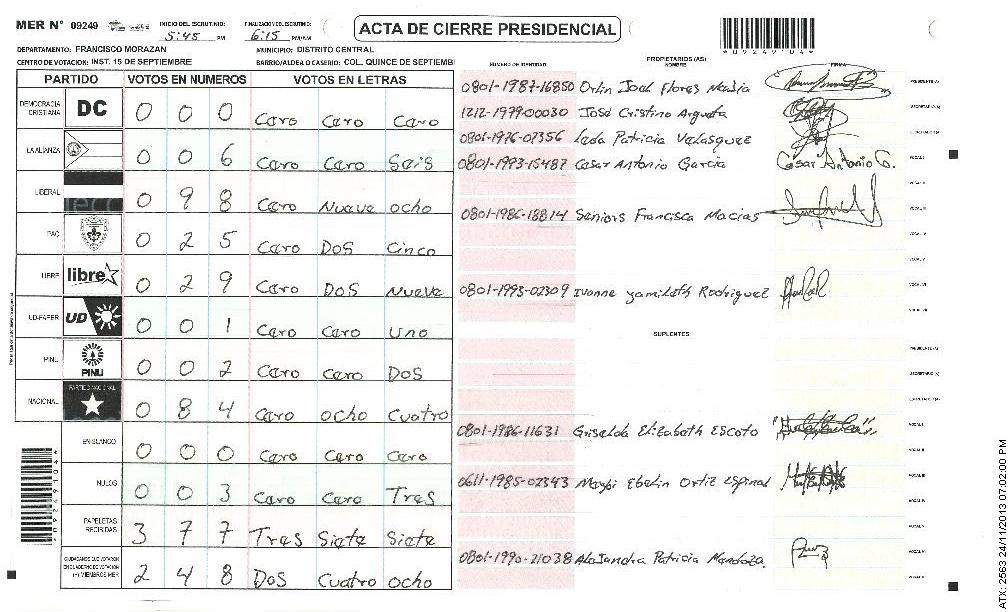 MER N° 09249
INICIO DEL ESCRUTINIO: 5:45 PM
FINALIZACION DEL ESCRUTINIO: 6:15 PM/AM
ACTA DE CIERRE PRESIDENCIAL
*09249104*
DEPARTAMENTO: FRANCISCO MORAZAN
MUNICIPIO: DISTRITO CENTRAL
CENTRO DE VOTACION: INST. 15 DE SEPTIEMBRE
BARRIO/ALDEA O CASERIO: COL. QUINCE DE SEPTIEMBI
PARTIDO VOTOS EN NUMEROS VOTOS EN LETRAS
DEMOCRACIA CRISTIANA DC 0 0 0 Cero Cero Cero
LA ALIANZA 0 0 6 Cero Cero Seis
LIBERAL 0 9 8 Cero Nueve Ocho
PAC 0 2 5 Cero Dos Cinco
LIBRE libre 0 2 9 Cero DOS Nueve
UD-FAPER UD 0 0 1 Cero Cero Uno
PINU PINU 0 0 2 Cero Cero DOS
NACIONAL PARTIDO NACIONAL 0 8 4 Cero Ocho Cuatro
EN BLANCO 0 0 0 Cero Cero Cero
NULOS 0 0 3 Cero Cero Tres
PAPELETAS RECIBIDAS 3 7 7 Tres Siete Siete
CIUDADANOS QUE VOTARON EN CUADERNO DE VOTACION (+) MIEMBROS MER 2 4 8 DOS Cuatro Ocho
PROPIETARIOS (AS)
NUMERO DE IDENTIDAD NOMBRE FIRMA
0801-1987-16850 Orlin Joel Flores Mejia PRESIDENTE(A)
1212-1979-00030 José Cristino Argueta SECRETARIO(A)
0801-1976-07356 Leda Patricia Velasquez
0801-1993-15487 Cesar Antonio Garcia Cesar Antonio G. VOCAL I
0801-1986-18814 Seniors Francisca Macias
0801-1993-02309 Ivonne yamileth Rodriguez
SUPLENTES
PRESIDENTE(A)
SECRETARIO (A)
0801-1986-11631 Griselda Elizabeth Escoto VOCAL I
VOCAL II
0611-1985-02343 Maysi Ebelin Ortiz Espinal VOCAL III
0801-1990-21038 Alejandra Patricia Mendoza
ATX: 2563 24/11/2013 07:02:00 PM